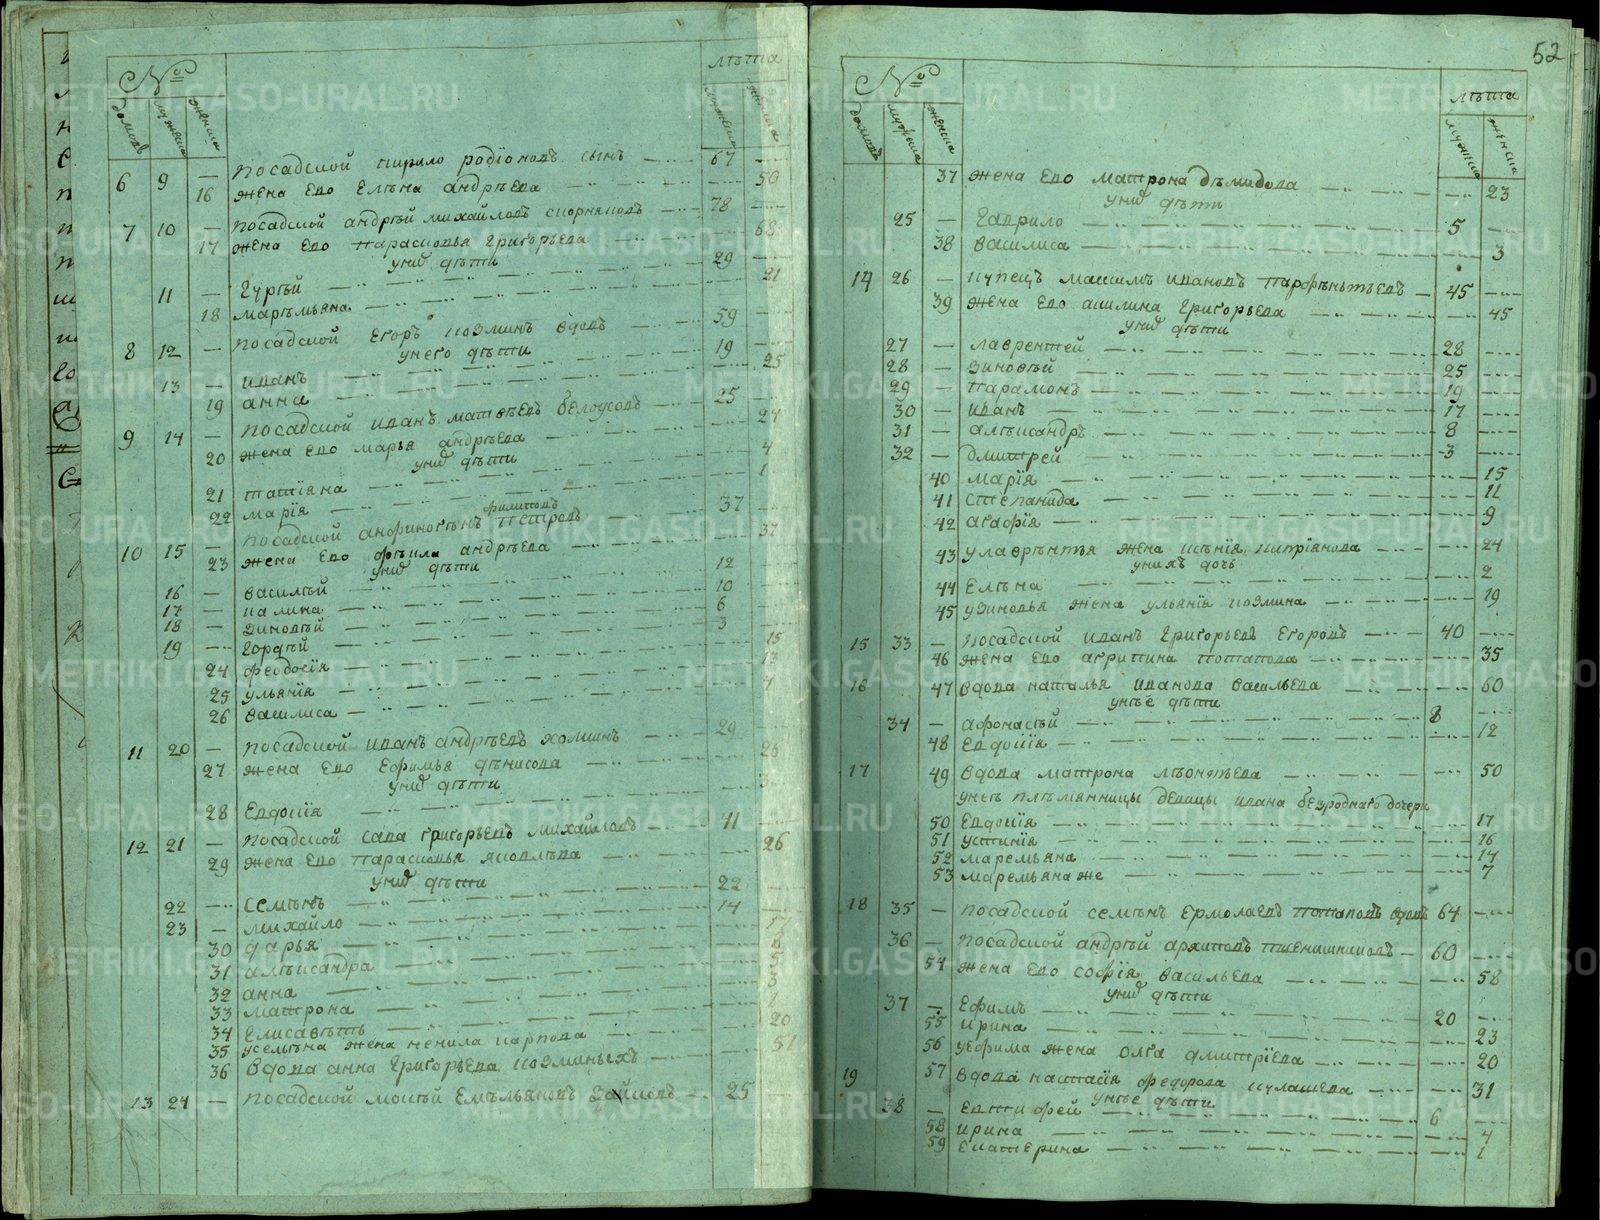 №
лѣта
домовъ мужеска женска мужеска женска
6 9 — посадской кирило родіоновъ сынъ 67
16 жена ево елѣна андрѣева 50
7 10 — посадской андрѣй михайловъ 78
17 жена ево парасковья григорьева 68
у нихъ дѣти
11 — гурѣй 29
18 маремьяна 21
8 12 — посадской егоръ козминъ вдовъ 59
у него дѣти
13 — иванъ 19
19 анна 25
9 14 — посадской иванъ матвѣевъ белоусовъ 25
20 жена ево марья андрѣева 24
у нихъ дѣти
21 татіяна 4
22 марія 1
филиповъ
10 15 — посадской анфиногѣнъ петровъ 37
23 жена ево фѣкла андрѣева 37
у нихъ дѣти
16 — василѣй 12
17 — калина 10
18 — зиновѣй 6
19 — гордѣй 3
24 феодосія 15
25 ульянія 13
26 василиса
11 20 — посадской иванъ андрѣевъ холкинъ 29
27 жена ево ефимья дѣнисова 26
у нихъ дѣти
28 евдокія 3
12 21 — посадской сава григорьевъ михайловъ 41
29 жена ево парасковья яковлѣва 26
у нихъ дѣти
22 — семѣнъ 22
23 — михайло 14
30 дарья
31 алѣксандра
32 анна
33 матрона
34 елисавѣтъ
35 у семѣна жена ненила карпова 20
36 вдова анна григорьева козминыхъ 51
13 24 — посадской мокѣй емѣльяновъ зайковъ 25
52
№
лѣта
домовъ мужеска женска мужеска женска
37 жена ево матрона дѣмидова 23
у нихъ дѣти
25 — гаврило 5
38 василиса 3
14 26 — купецъ максимъ ивановъ парфѣнтьевъ 45
39 жена ево акилина григорьева 45
у нихъ дѣти
27 — лаврентей 28
28 — зиновѣй 25
29 — парамонъ 19
30 — иванъ 17
31 — алѣксандръ 8
32 — дмитрей 3
40 марія 15
41 степанида 11
42 агафія 9
43 у лаврѣнтья жена ксѣнія кипріянова 24
у нихъ дочь
44 елѣна 2
45 у зиновья жена ульянія козмина 19
15 33 — посадской иванъ григорьевъ егоровъ 40
46 жена ево агрипина потапова 35
16 47 вдова наталья иванова васильева 60
у нѣе дѣти
34 — афонасѣй 8
48 евдокія 12
17 49 вдова матрона лѣонтьева 50
у неѣ плѣмянницы девицы ивана безроднаго дочери
50 евдокія 17
51 устинія 16
52 маремьяна 14
53 маремьяна же 7
18 35 — посадской семѣнъ ермолаевъ потаповъ вдовъ 64
36 — посадской андрѣй архиповъ пшенишниковъ 60
54 жена ево софія васильева 58
у нихъ дѣти
37 — ефимъ 20
55 ирина 23
56 у ефима жена олга дмитріева 20
19 57 вдова настасія федорова кулашева 31
у нѣе дѣти
38 — евтифей 6
58 ирина 4
59 екатерина 1